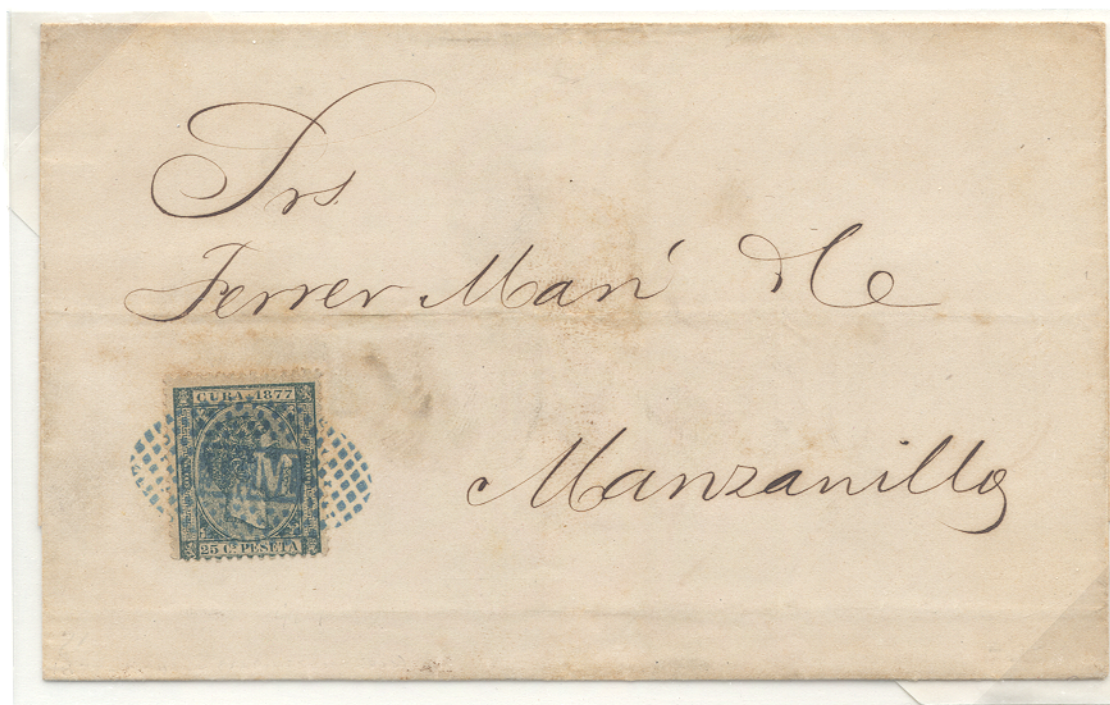 Srs.
Ferrer Mari
CUBA 1877
M
25 C. PESETA
Manzanillo